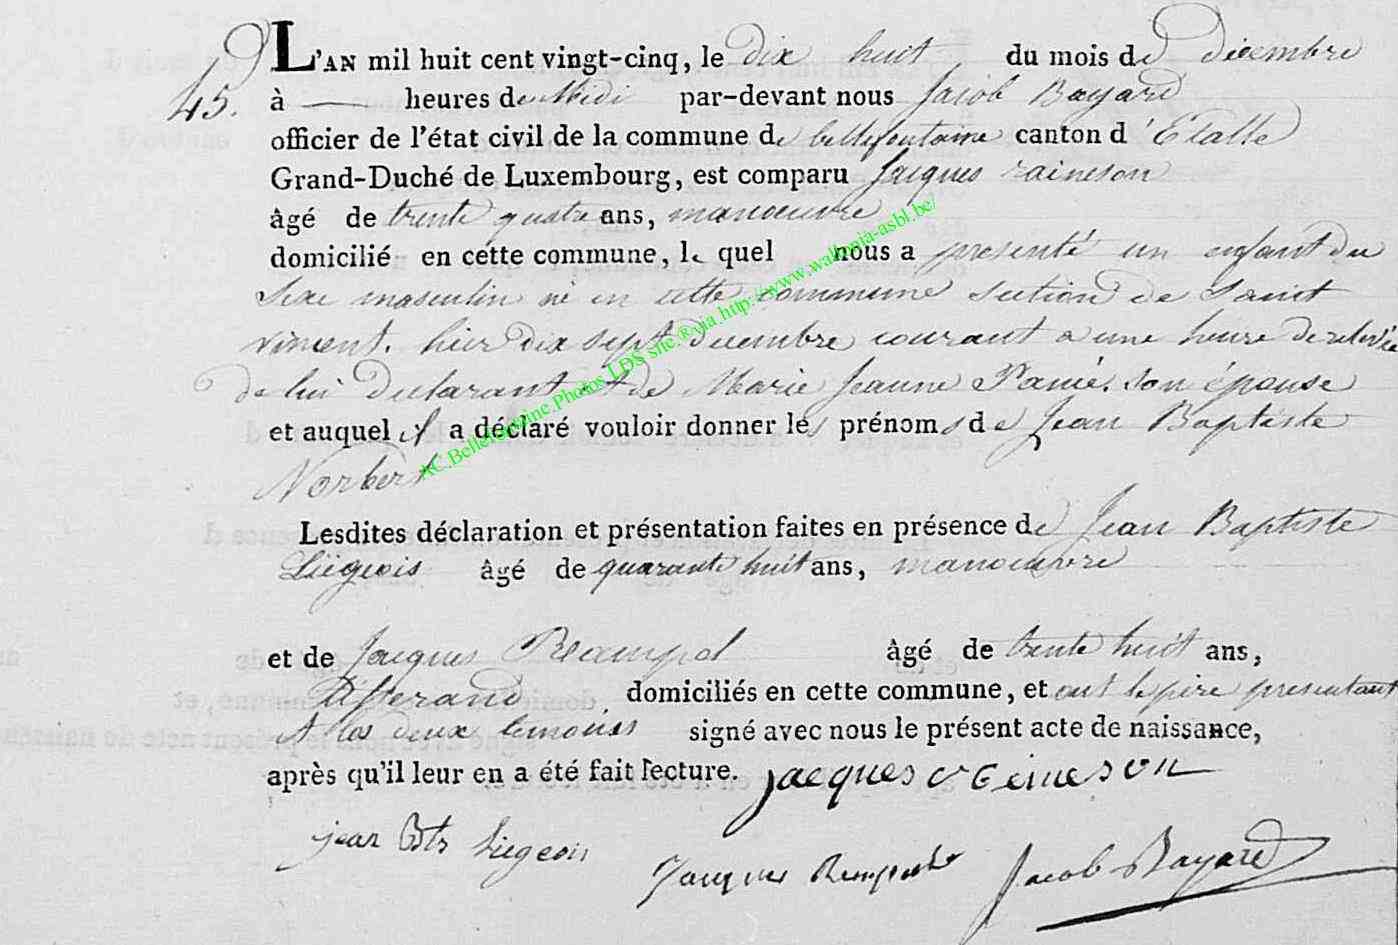 L'AN mil huit cent vingt-cinq, le dix huit du mois de décembre
45. à — heures de Midi par-devant nous Jacob Bayard
officier de l'état civil de la commune de bellefontaine canton d'Etalle
Grand-Duché de Luxembourg, est comparu Jacques raineson
âgé de trente quatre ans, manoeuvre
domicilié en cette commune, le quel nous a presenté un enfant du
Sexe masculin né en cette commune section de Saint
vincent. hier dix sept decembre courant a une heure de relevée
de lui declarant et de Marie Jeanne son épouse
et auquel il a déclaré vouloir donner les prénoms de Jean Baptiste
Norbert
Lesdites déclaration et présentation faites en présence de Jean Baptiste
Liégeois âgé de quarante huit ans, manoeuvre
et de Jacques âgé de trente huit ans,
tisserand domiciliés en cette commune, et ont le père presentant
et les deux temoins signé avec nous le présent acte de naissance,
après qu'il leur en a été fait lecture. jacques
jean bts liegeois
Jacques Jacob Bayard
AC.Bellefontaine.Photos LDS site.®via http://www.wallonia-asbl.be/